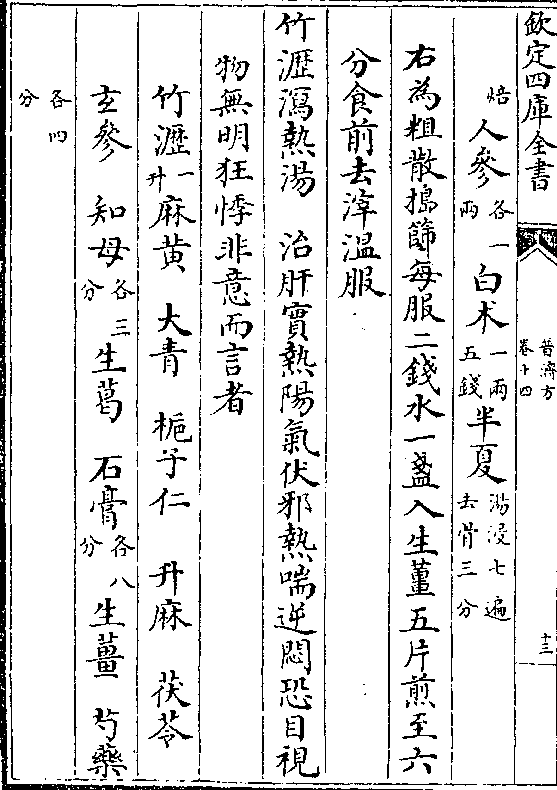 欽定四庫全書
普濟方
卷十四
十三
焙人參各一兩白术一兩五錢半夏湯浸七遍去骨三分
右為粗散搗篩每服二錢水一盞入生薑五片煎至六
分食前去滓溫服
竹瀝瀉熱湯 治肝實熱陽氣伏邪熱喘逆悶恐目視
物無明狂悸非意而言者
竹瀝一升麻黃 大青 梔子仁 升麻 茯苓
玄參 知母各三分生葛 石膏各八分生薑 芍藥
各四分